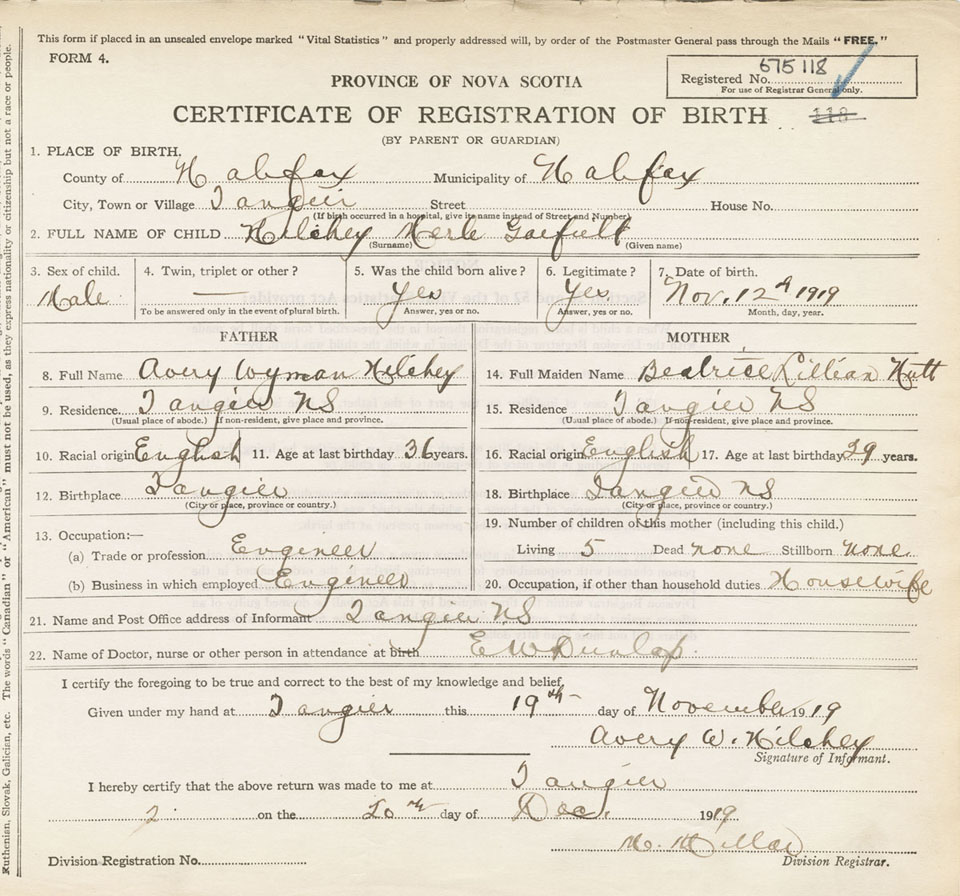 This form if placed in an unsealed envelope marked "Vital Statistics" and properly addressed will, by order of the Postmaster General pass through the Mails "FREE."
FORM 4.
675 118
PROVINCE OF NOVA SCOTIA
Registered No.
For use of Registrar General only.
CERTIFICATE OF REGISTRATION OF BIRTH
118
(BY PARENT OR GUARDIAN)
1. PLACE OF BIRTH.
County of Halifax Municipality of Halifax
City, Town or Village Tangier Street House No.
(If birth occurred in a hospital, give its name instead of Street and Number)
2. FULL NAME OF CHILD Hilchey Merle
(Surname) (Given name)
3. Sex of child. 4. Twin, triplet or other? 5. Was the child born alive? 6. Legitimate? 7. Date of birth.
Male — Yes Yes Nov. 12th 1919
To be answered only in the event of plural birth. Answer, yes or no. Answer, yes or no. Month, day, year.
FATHER MOTHER
8. Full Name Avery Wyman Hilchey 14. Full Maiden Name Beatrice Lillian Hutt
9. Residence. Tangier NS 15. Residence Tangier NS
(Usual place of abode.) If non-resident, give place and province. (Usual place of abode.) If non-resident, give place and province.
10. Racial origin English 11. Age at last birthday 36 years. 16. Racial origin English 17. Age at last birthday 29 years.
12. Birthplace Tangier 18. Birthplace Tangier NS
(City or place, province or country.) (City or place, province or country.)
13. Occupation:— 19. Number of children of this mother (including this child.)
(a) Trade or profession Engineer Living 5 Dead none Stillborn none
(b) Business in which employed Engineer 20. Occupation, if other than household duties Housewife
21. Name and Post Office address of Informant Tangier NS
22. Name of Doctor, nurse or other person in attendance at birth E W Dunlap
I certify the foregoing to be true and correct to the best of my knowledge and belief,
Given under my hand at Tangier this 19th day of November 1919
Avery W. Hilchey
Signature of Informant.
I hereby certify that the above return was made to me at Tangier
2 on the 20th day of Dec. 1919
Division Registration No. Division Registrar.
Ruthenian, Slovak, Galician, etc. The words "Canadian" or "American" must not be used, as they express nationality or citizenship but not a race or people.